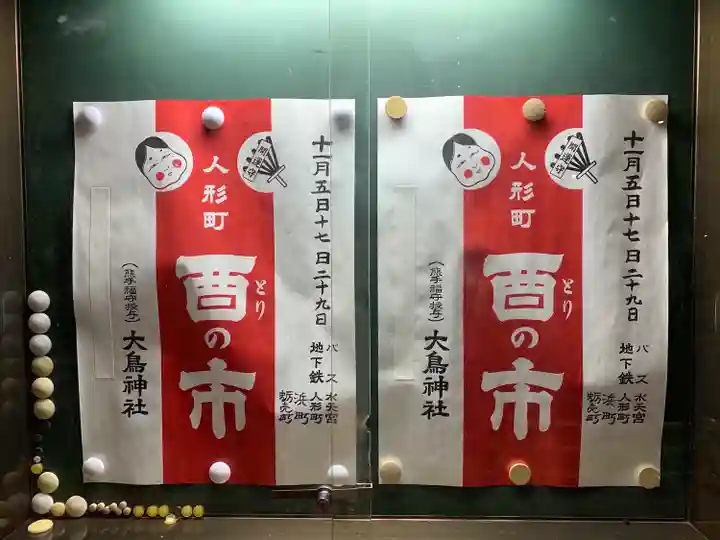 十一月五日十七日二十九日
バス 水天宮
地下鉄 人形町
浜町
蛎売町
人形町
酉の市
とり
(熊手福守授与)
大鳥神社
十一月五日十七日二十九日
バス 水天宮
地下鉄 人形町
浜町
蛎売町
人形町
酉の市
とり
(熊手福守授与)
大鳥神社